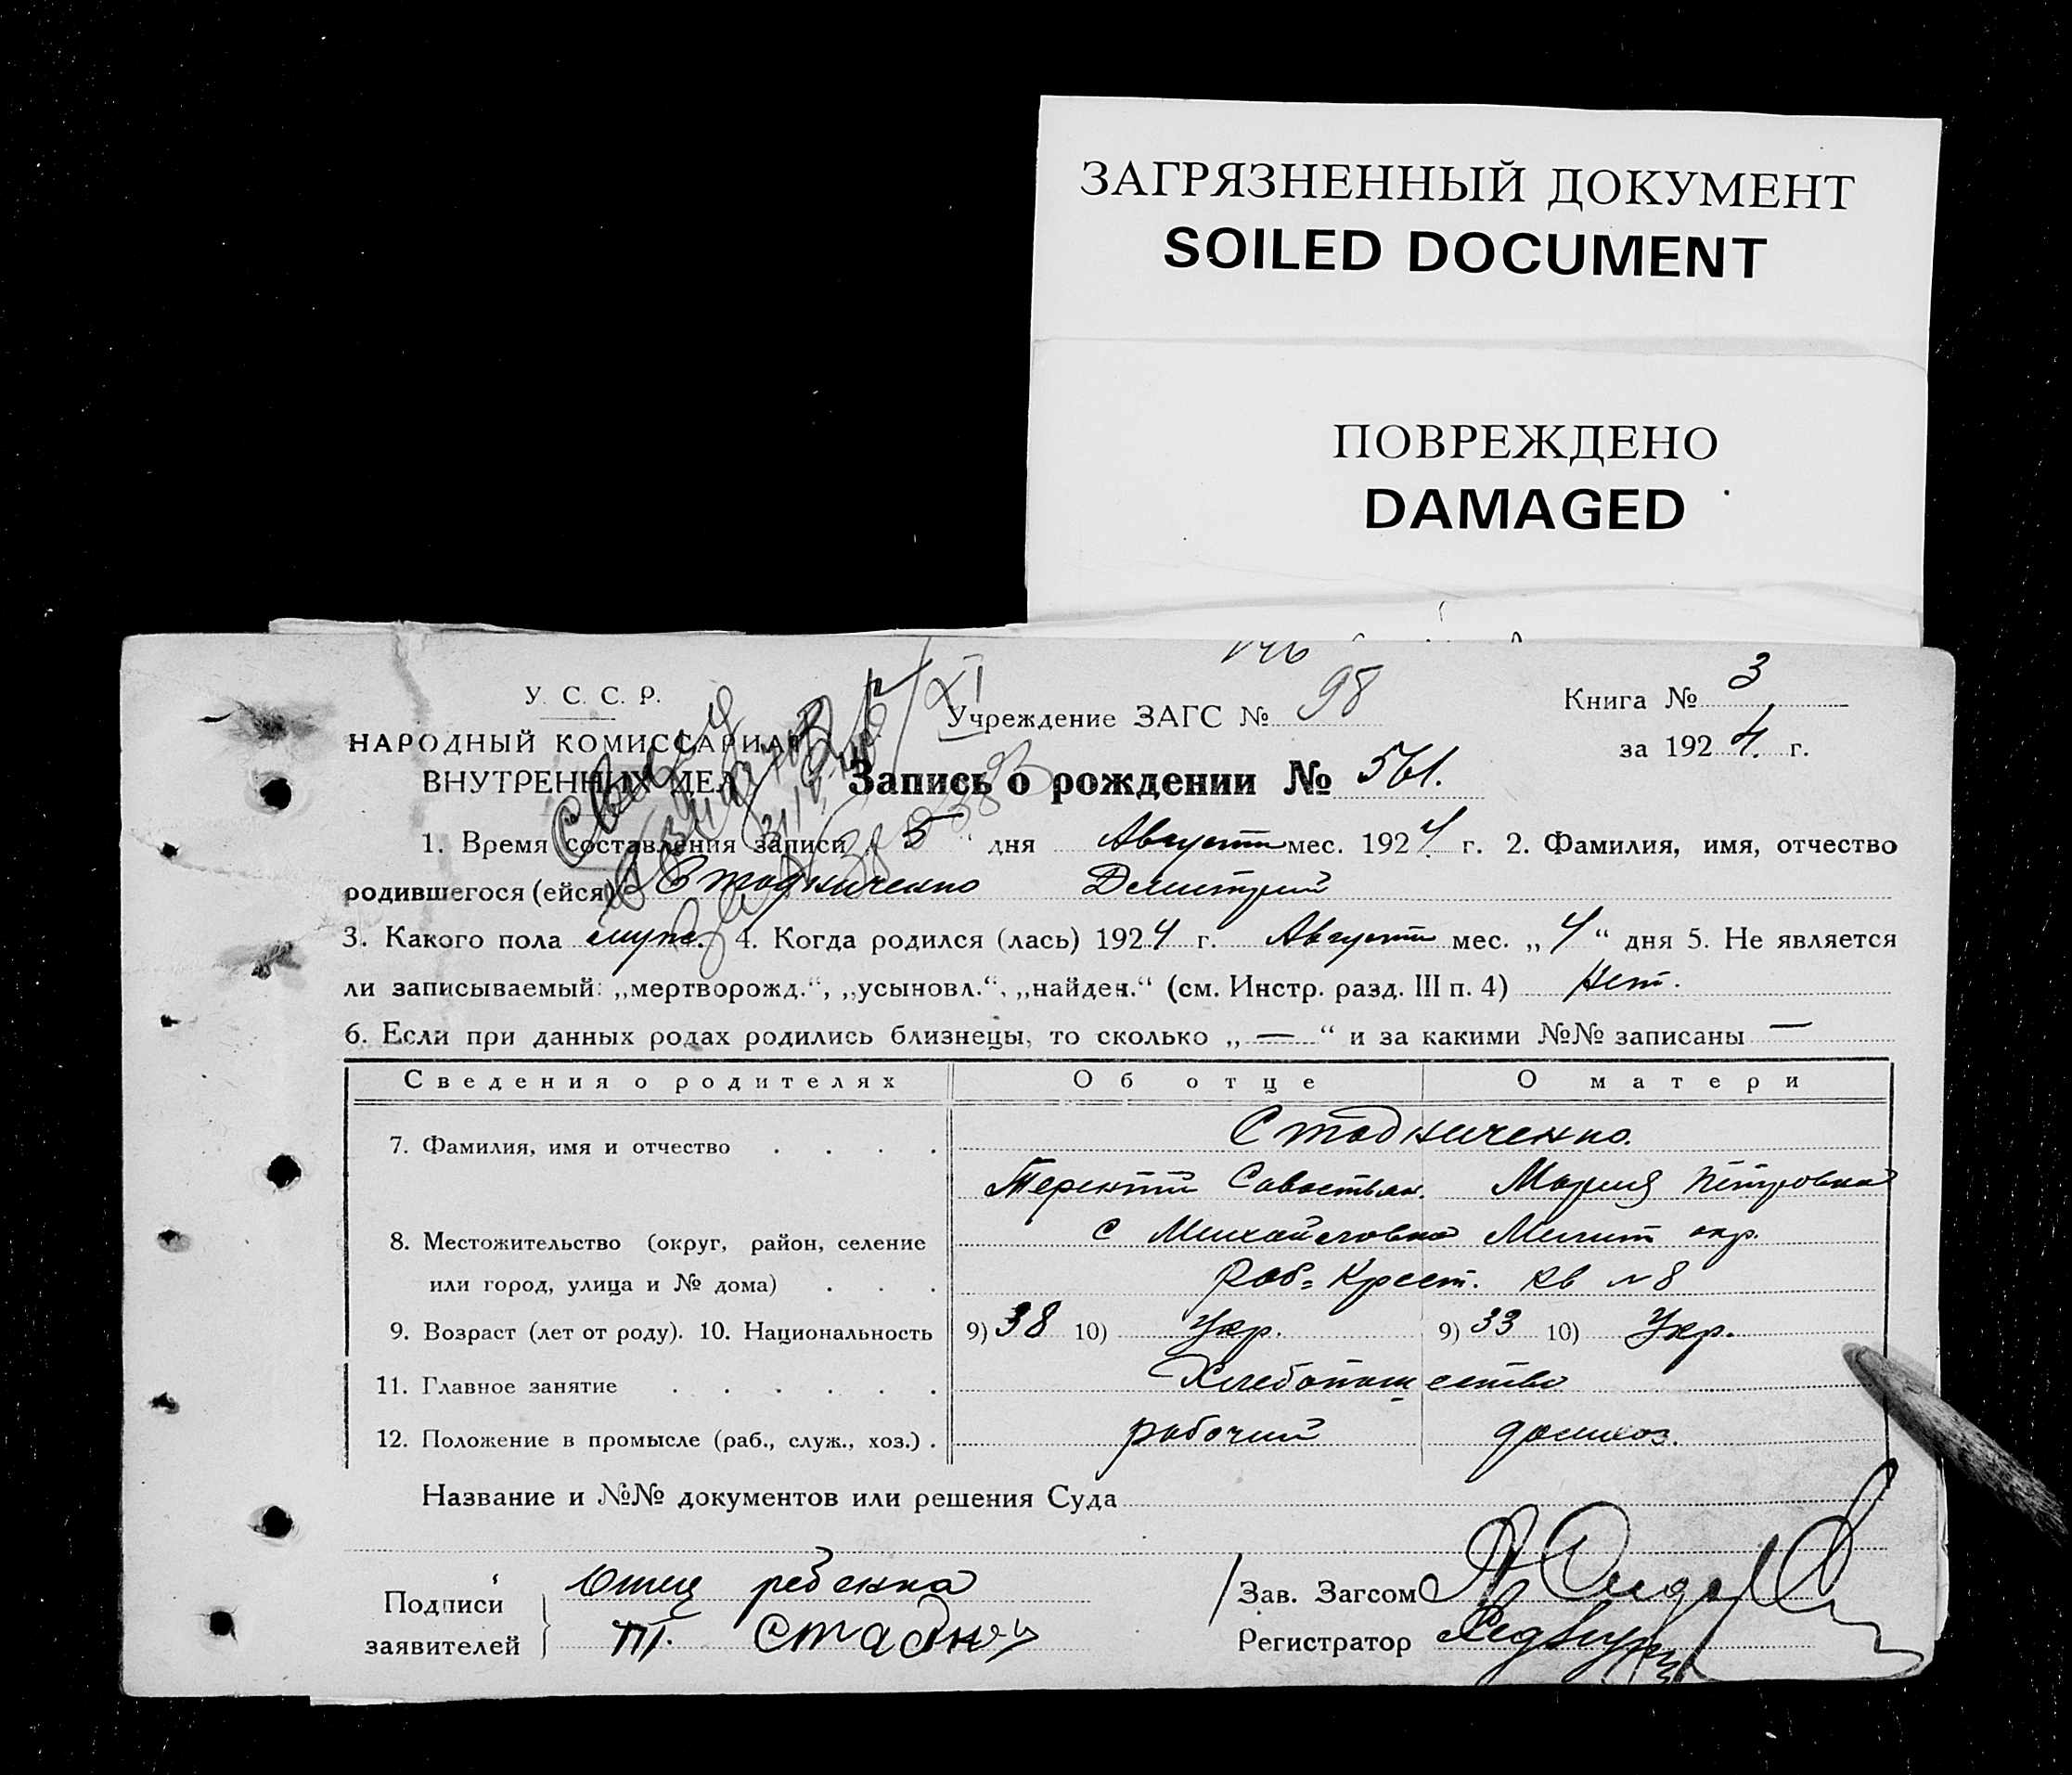 ЗАГРЯЗНЕННЫЙ ДОКУМЕНТ
SOILED DOCUMENT
ПОВРЕЖДЕНО
DAMAGED
У. С. С. Р.
НАРОДНЫЙ КОМИССАРИАТ
ВНУТРЕННИХ ДЕЛ
Учреждение ЗАГС № 98
Книга № 3
за 1924 г.
Запись о рождении № 561.
1. Время составления записи „ 5 “ дня Август мес. 1924 г. 2. Фамилия, имя, отчество
родившегося (ейся) Стадниченко Демитрий
3. Какого пола муж. 4. Когда родился (лась) 1924 г. Август мес. „ 4 “ дня 5. Не является
ли записываемый: „мертворожд.“, „усыновл.“, „найден.“ (см. Инстр. разд. III п. 4) Нет.
6. Если при данных родах родились близнецы, то сколько „ — “ и за какими №№ записаны —
Сведения о родителях Об отце О матери
7. Фамилия, имя и отчество . . . . Стадниченко.
Терентий Савостьян. Мария Петровна
8. Местожительство (округ, район, селение с Михайловка Мелит окр.
или город, улица и № дома) . . . Раб=Крест. кв № 8
9. Возраст (лет от роду). 10. Национальность 9) 38 10) Укр. 9) 33 10) Укр.
11. Главное занятие . . . . . . Хлебопашество
12. Положение в промысле (раб., служ., хоз.) . рабочий домхоз.
Название и №№ документов или решения Суда
Подписи
заявителей
Отец ребенка
Т. Стадни
Зав. Загсом
Регистратор